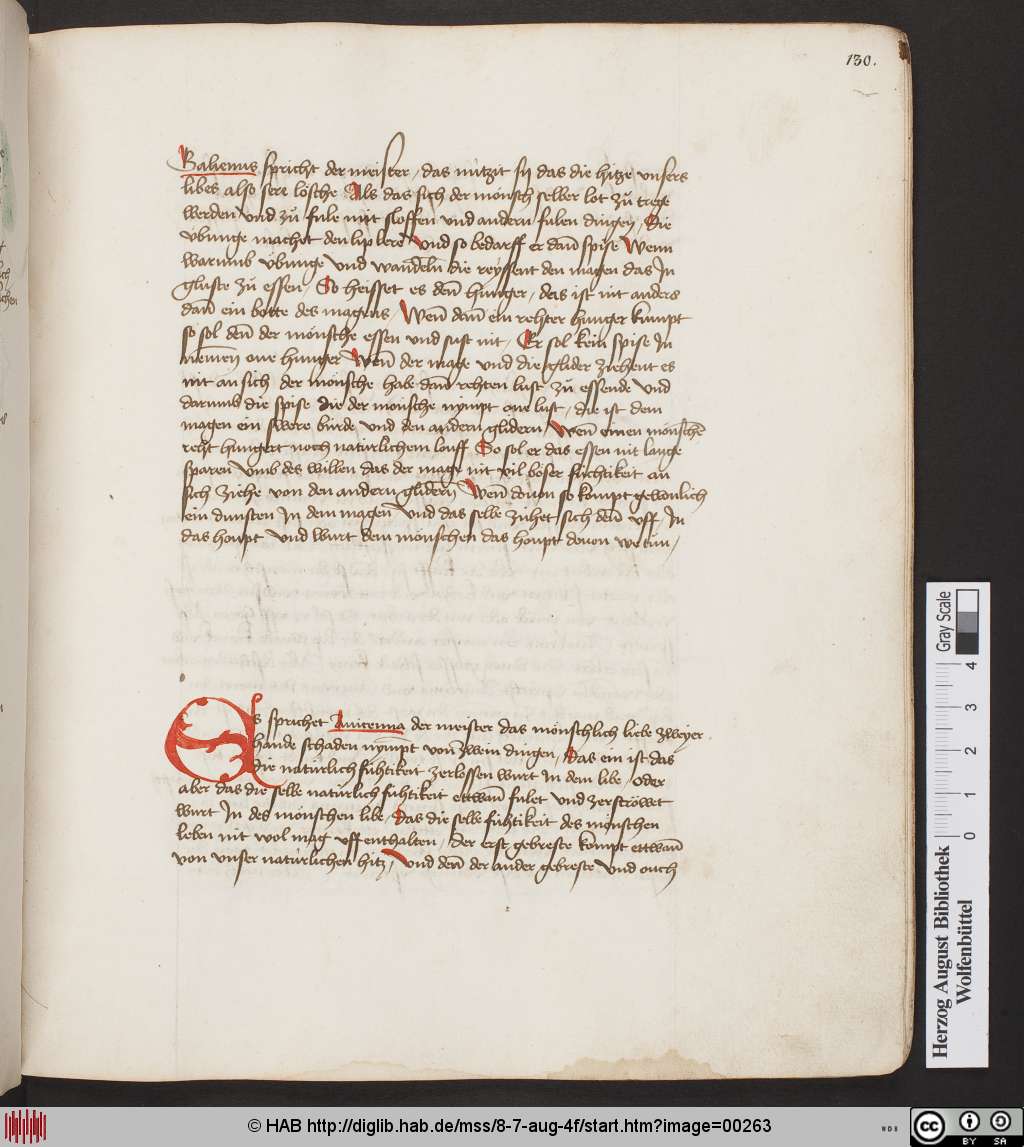 130.
Galienus spricht der meister / das nützit sy das die hitze unsers
libes also sere lösche Als das sich der mönsch selber lot zů trege
werden und zů fule mit sloffen und andern fulen dingen / Die
übunge machet den lip lere und so bedarff er dañ spise Wenn
warumb übunge und wandeln die reyssent den magen das In
gluste zů essen / So heisset es deñ hunger / das ist nit anders
dañ ein botte des magens / Weñ dañ ein rehter hunger kumpt
so sol deñ der mönsche essen und sust nit / Er sol kein spise In
nemen one hunger Weñ der mage und die glider ziehent es
nit an sich der mönsche habe dañ rehten lust zů essende und
darumb die spise die der mönsche nympt one lust / die ist dem
magen ein swere bürde und den andern glidern / Weñ einen mönschẽ
reht hungert noch natürlichem louff So sol er das essen nit lange
sparen Umb des willen das der mage nit vil böser füchtikeit an
sich ziehe von den andern glidern Weñ douon so kompt gewonlich
ein dunsten In dem magen und das selbe zühet sich deñ uff In
das houpt und wurt dem mönschen das houpt douon we tůn /
Es sprichet Auicenna der meister das mönschlich liebe zweyer
hande schaden nympt von zwein dingen / Das ein ist das
die natürlich fühtikeit zerlossen wurt In dem libe / oder
aber das die selbe natürlich fühtikeit ettwañ fulet und zerströwet
wurt In des mönschen libe / Das die selbe fühtikeit des mönschen
leben nit wol mag uff enthalten / der erst gebreste kompt ettwañ
von unser natürlichen hitz / und deñ der ander gebreste und ouch
Gray Scale
0 1 2 3 4
Herzog August Bibliothek
Wolfenbüttel
© HAB http://diglib.hab.de/mss/8-7-aug-4f/start.htm?image=00263
WDB
CC BY SA